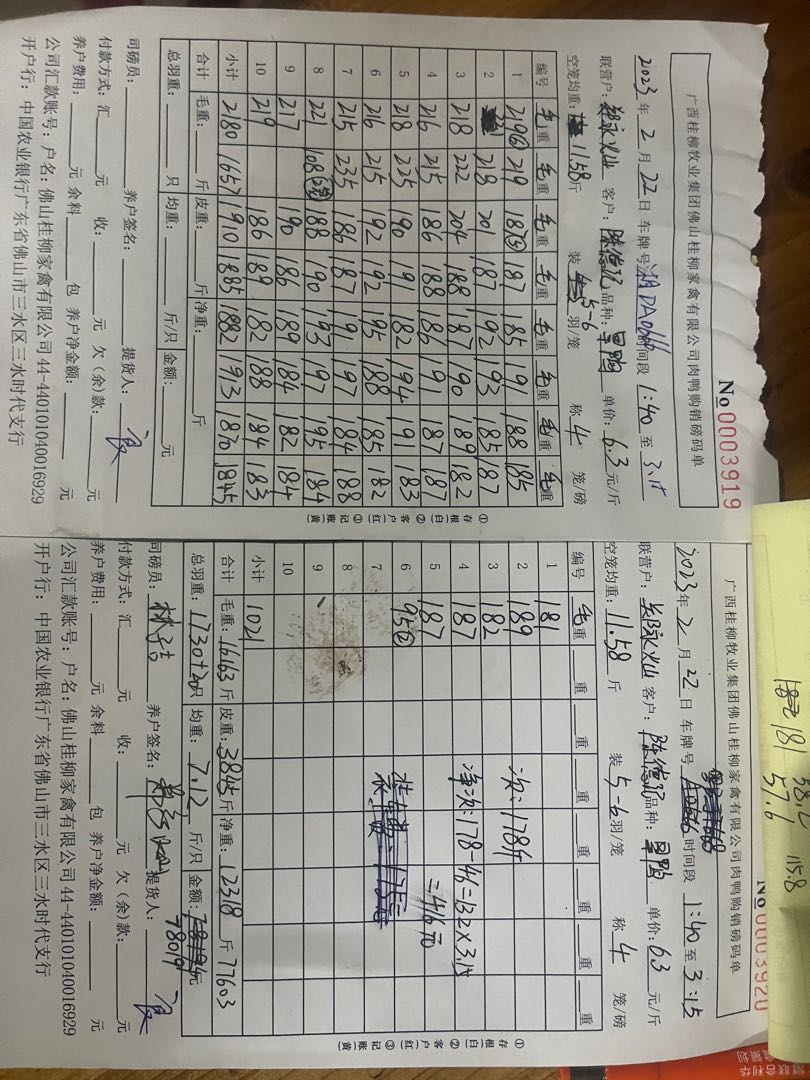 广西桂柳牧业集团佛山桂柳家禽有限公司肉鸭购销磅码单
No 0003919
2023年 2 月 22 日 车牌号 时间段 1:40 至 3:15
联营户: 客户: 陈德 品种: 单价: 6.3 元/斤
空笼均重: 11.58 斤 装 5-6 羽/笼 称 4 笼/磅
编号 毛重 毛重 毛重 毛重 毛重 毛重 毛重 毛重
1 219⑥ 219 187⑤ 187 185 191 188 185
2 218 201 187 192 193 185 187
3 218 222 204 188 187 190 189 182
4 216 215 186 188 186 191 187 187
5 218 225 190 191 182 194 191 183
6 216 215 192 192 195 188 185 182
7 215 235 186 187 191 197 184 188
8 221 108 188 190 193 197 195 184
9 217 190 186 189 184 182 184
10 219 186 189 182 188 184 183
小计 2180 1657 1910 1885 1882 1913 1870 1845
合计 毛重: 斤 皮重: 斤 净重: 斤
总羽重: 只 均重: 斤/只 金额: 元
司磅员: 养户签名: 提货人:
付款方式: 汇 元 收: 元 欠(余)款: 元
养户费用: 元 余料 包 养户净金额: 元
公司汇款账号: 户名: 佛山桂柳家禽有限公司 44-440101040016929
开户行: 中国农业银行广东省佛山市三水区三水时代支行
①存根(白) ②客户(红) ③记账(黄)
广西桂柳牧业集团佛山桂柳家禽有限公司肉鸭购销磅码单
No 0003920
2023年 2 月 22 日 车牌号 时间段 1:40 至 3:15
联营户: 客户: 陈德 品种: 单价: 6.3 元/斤
空笼均重: 11.58 斤 装 5-6 羽/笼 称 4 笼/磅
编号 毛重 重 重 重 重 重 重 重
1 181
2 189
3 182
4 187
5 187
6 95②
7
8
9
10
小计 1021
次: 178斤
净次: 178-46=132×3.15
=416元
合计 毛重: 16163 斤 皮重: 3845 斤 净重: 12318 斤 77603
总羽重: 1730+20 只 均重: 7.12 斤/只 金额: 元
78019
司磅员: 养户签名: 提货人:
付款方式: 汇 元 收: 元 欠(余)款: 元
养户费用: 元 余料 包 养户净金额: 元
公司汇款账号: 户名: 佛山桂柳家禽有限公司 44-440101040016929
开户行: 中国农业银行广东省佛山市三水区三水时代支行
①存根(白) ②客户(红) ③记账(黄)
181
57.6
115.8